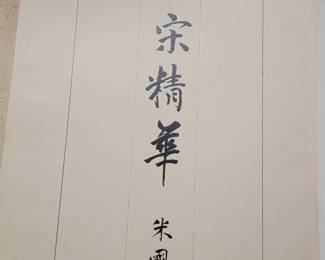 宋精華
米